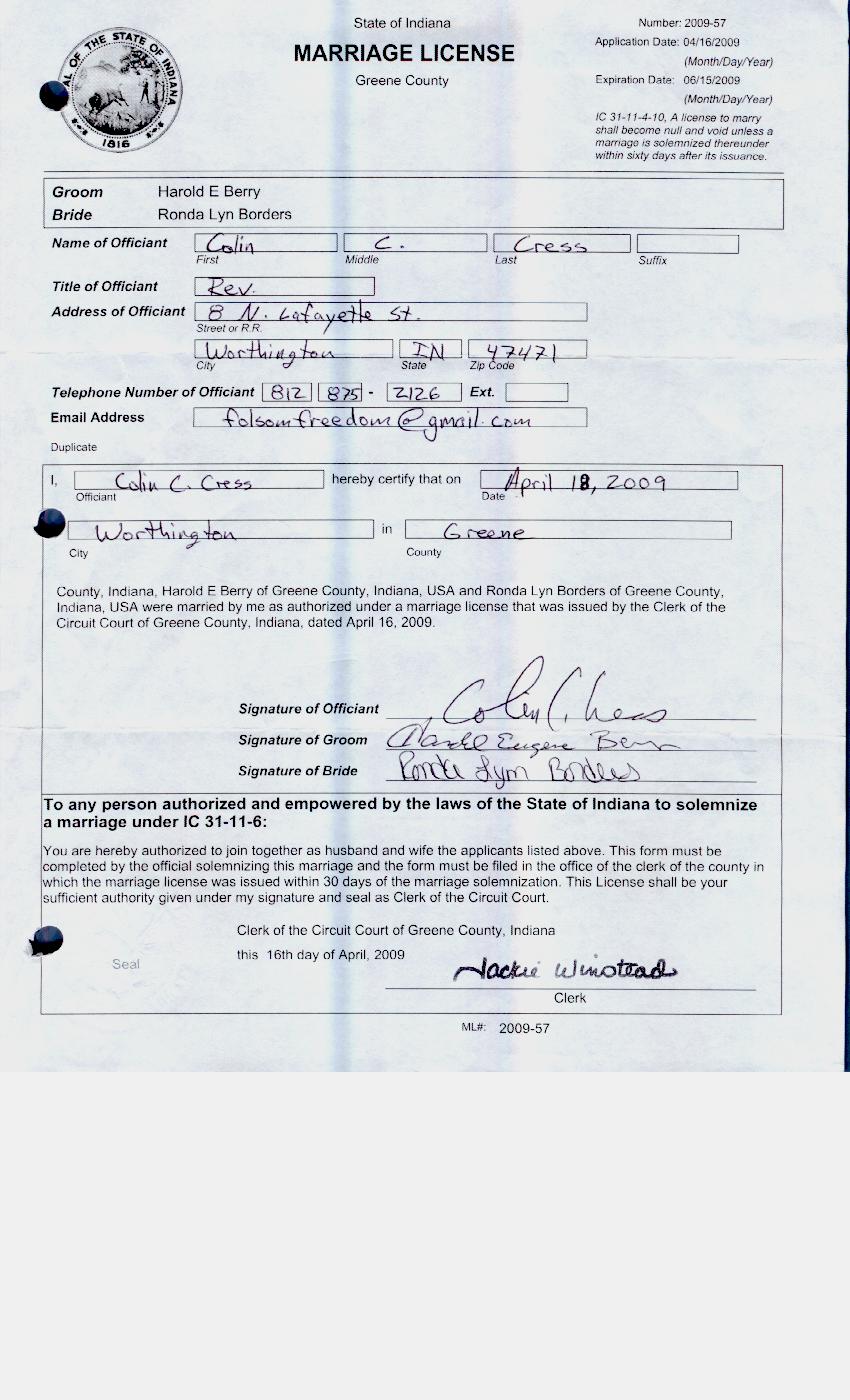 State of Indiana
MARRIAGE LICENSE
Greene County
Number: 2009-57
Application Date: 04/16/2009
(Month/Day/Year)
Expiration Date: 06/15/2009
(Month/Day/Year)
IC 31-11-4-10, A license to marry
shall become null and void unless a
marriage is solemnized thereunder
within sixty days after its issuance.
SEAL OF THE STATE OF INDIANA
1816
Groom Harold E Berry
Bride Ronda Lyn Borders
Name of Officiant Colin C. Cress
First Middle Last Suffix
Title of Officiant Rev.
Address of Officiant 8 N. Lafayette St.
Street or R.R.
Worthington IN 47471
City State Zip Code
Telephone Number of Officiant 812 875 - 2126 Ext.
Email Address folsomfreedom@gmail.com
Duplicate
I, Colin C. Cress hereby certify that on April 18, 2009
Officiant Date
Worthington in Greene
City County
County, Indiana, Harold E Berry of Greene County, Indiana, USA and Ronda Lyn Borders of Greene County,
Indiana, USA were married by me as authorized under a marriage license that was issued by the Clerk of the
Circuit Court of Greene County, Indiana, dated April 16, 2009.
Signature of Officiant Colin C. Cress
Signature of Groom Harold Eugene Berry
Signature of Bride Ronda Lyn Borders
To any person authorized and empowered by the laws of the State of Indiana to solemnize
a marriage under IC 31-11-6:
You are hereby authorized to join together as husband and wife the applicants listed above. This form must be
completed by the official solemnizing this marriage and the form must be filed in the office of the clerk of the county in
which the marriage license was issued within 30 days of the marriage solemnization. This License shall be your
sufficient authority given under my signature and seal as Clerk of the Circuit Court.
Clerk of the Circuit Court of Greene County, Indiana
this 16th day of April, 2009
Seal
Jackie Winstead
Clerk
ML#: 2009-57